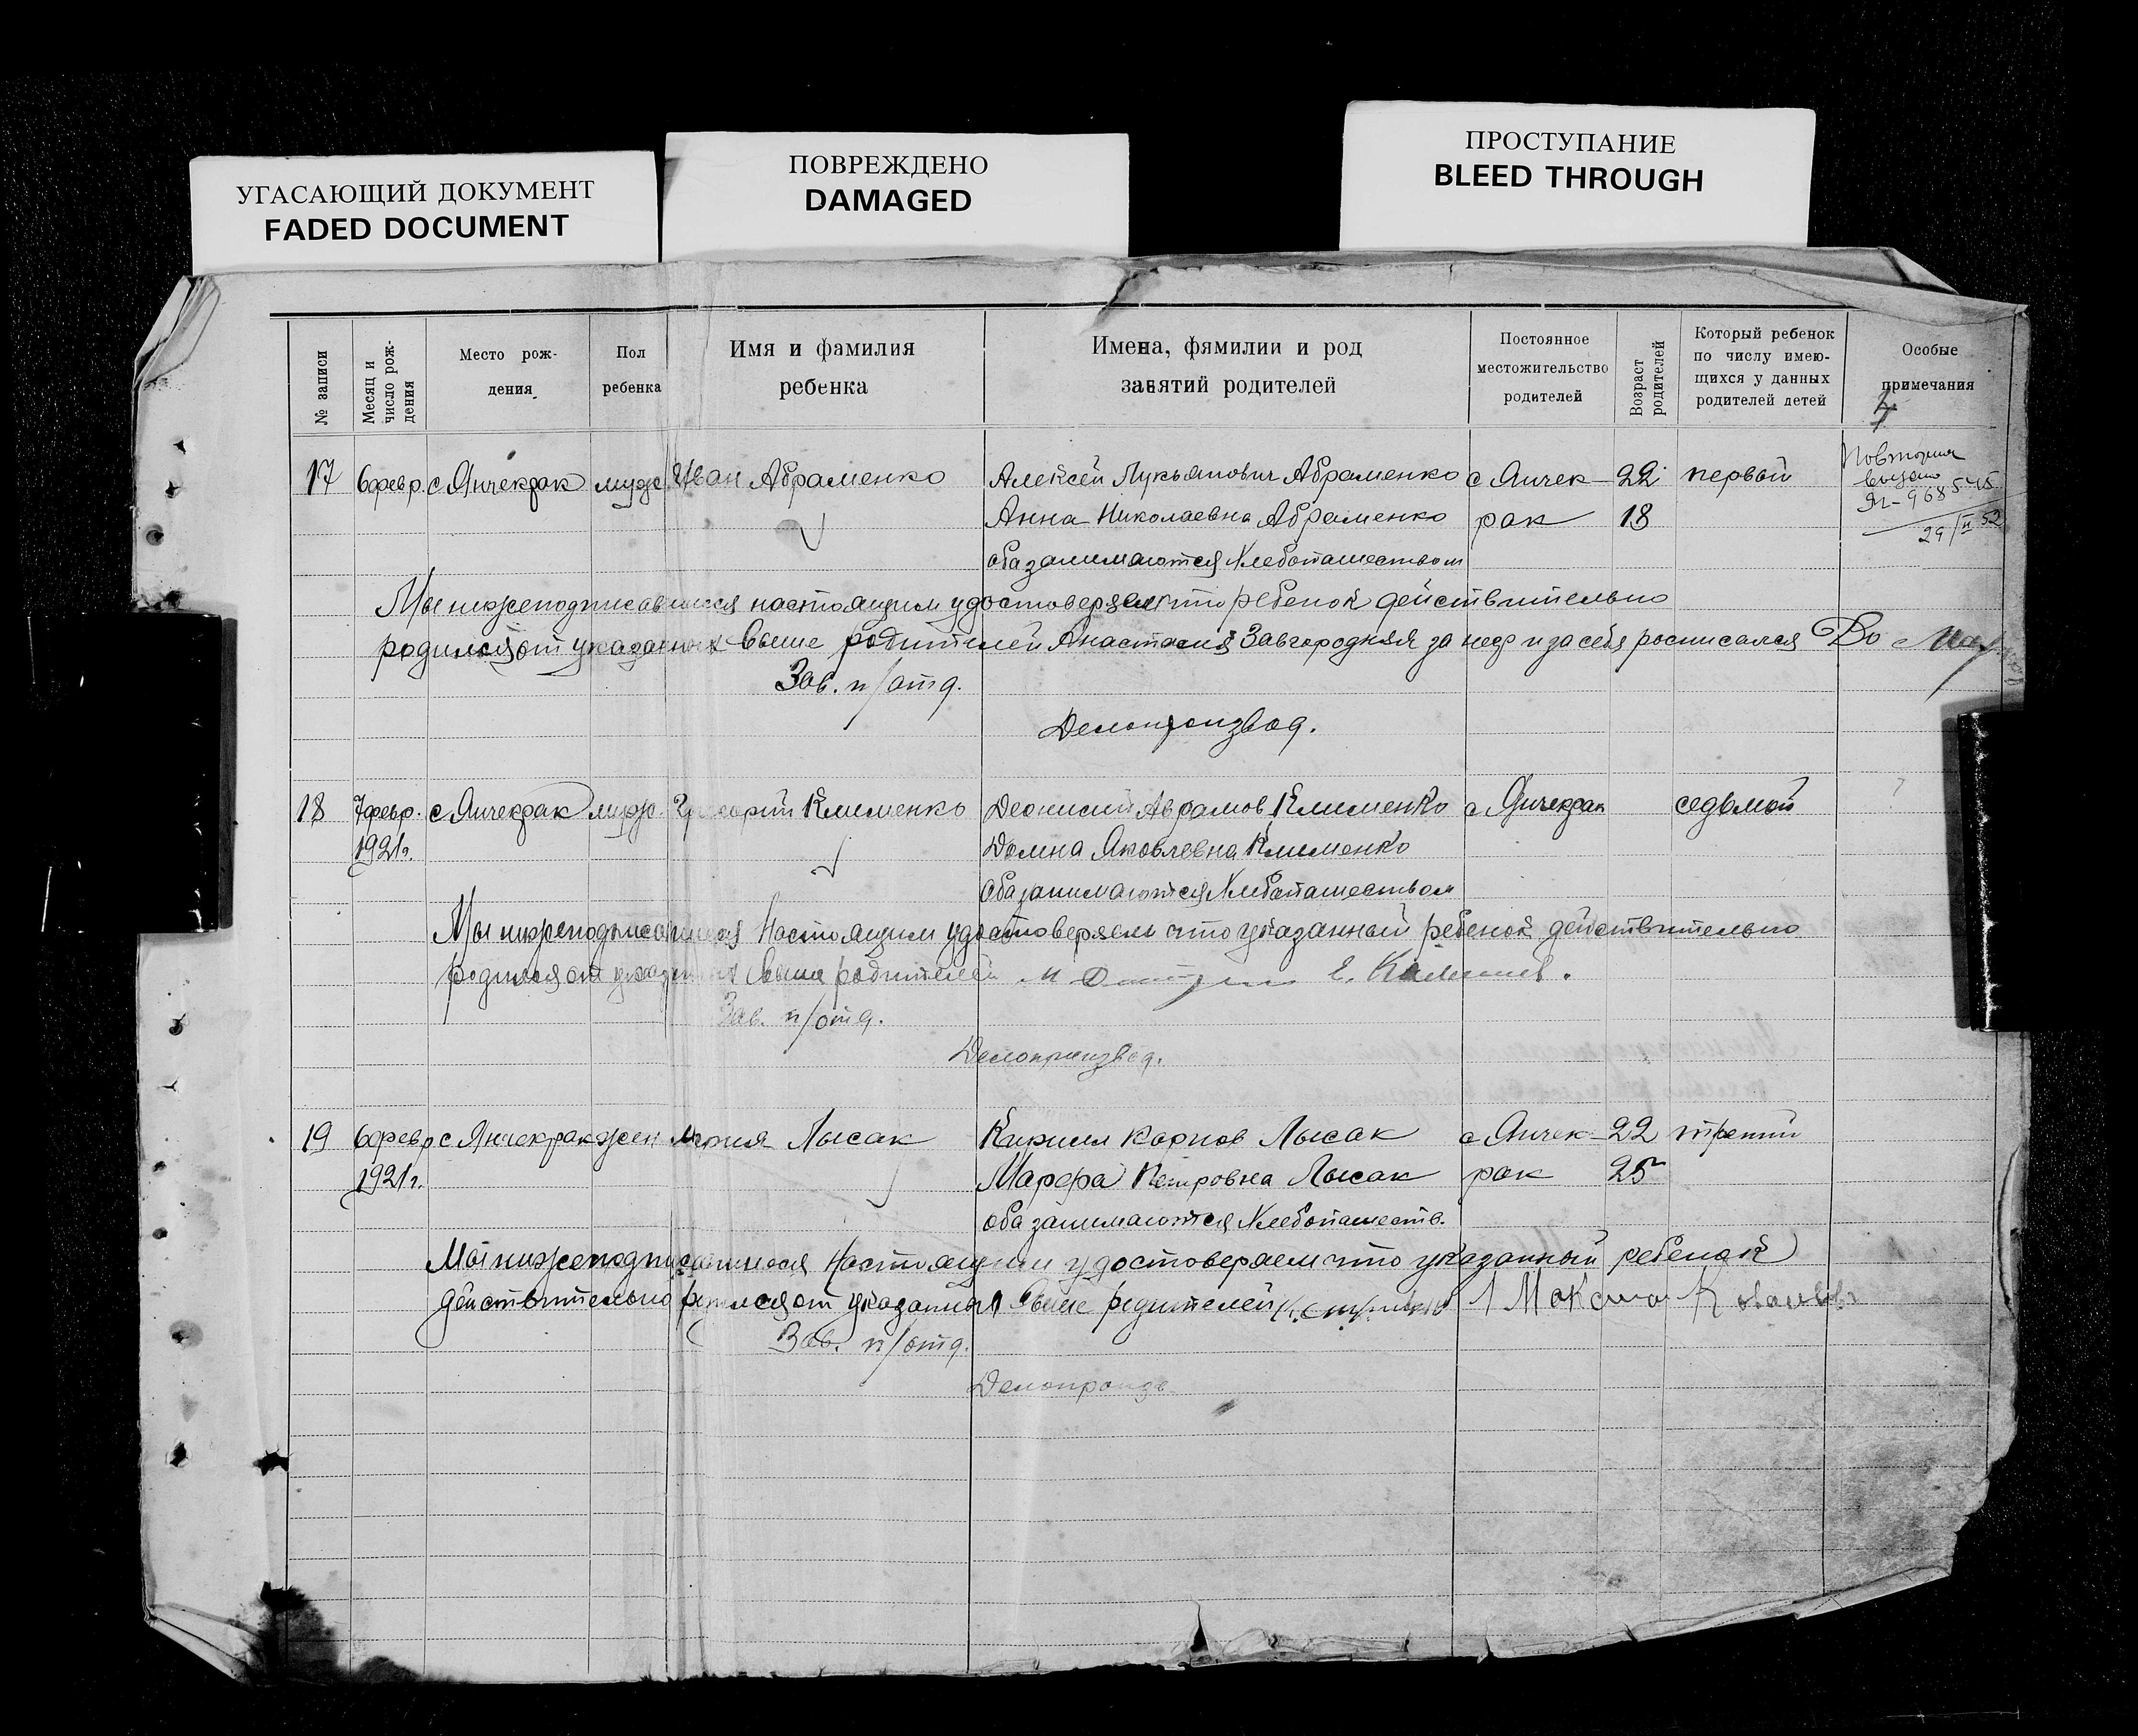 УГАСАЮЩИЙ ДОКУМЕНТ
FADED DOCUMENT
ПОВРЕЖДЕНО
DAMAGED
ПРОСТУПАНИЕ
BLEED THROUGH
№ записи
Месяц и число рож-дения
Место рож-дения
Пол ребенка
Имя и фамилия ребенка
Имена, фямилии и род занятий родителей
Постоянное местожительство родителей
Возраст родителей
Который ребенок по числу имею-щихся у данных родителей детей
Особые примечания
17 6 февр. с Янчекрак муж. Иван Абраменко Алексей Лукьянович Абраменко с Янчек- 22 первый
Повторно выдано
968545
29/II 52
Анна Николаевна Абраменко рак 18
оба занимаются хлебопашеством
Мы нижеподписавшиеся настоящим удостоверяем что ребенок действительно
родился от указанных выше родителей Анастасия Завгородняя за нею и за себя росписался
Зав. п/отд.
Делопроизвод.
18 7 февр. с Янчекрак муж. Григорий Клименко Деонисий Аврамов Клименко с Янчекрак седьмой
1921г. Домна Яковлевна Клименко
оба занимаются хлебопашеством
Мы нижеподписавшиеся настоящим удостоверяем что указанный ребенок действительно
родился от указанных выше родителей
Зав. п/отд.
Делопроизвод.
19 6 февр с Янчекрак жен Мария Лысак Кирилл Карпов Лысак с Янчек- 22 третий
1921г. Марфа Петровна Лысак рак 25
оба занимаются хлебопашеств.
Мы нижеподписавшиеся настоящим удостоверяем что указанный ребенок
действительно родился от указанных выше родителей
Зав. п/отд.
Делопроизв